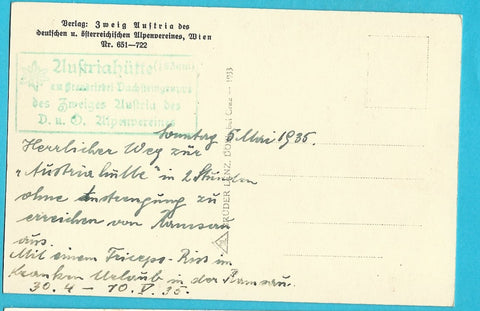 Verlag: Zweig Austria des
deutschen u. österreichischen Alpenvereines, Wien
Nr. 651—722
Austriahütte
am Brandriedel Dachsteingruppe
des Zweiges Austria des
D. u. O. Alpenvereines
Sonntag 5 Mai 1935.
Herrlicher Weg zur
„Austria hütte" in 2 Stunden
ohne Anstrengung zu
erreichen von Ramsau
aus.
Mit einem Triceps-Riss im
Kranken Urlaub in der Ramsau.
30. 4 – 10. V. 35.
BRUDER LENZ, 1933